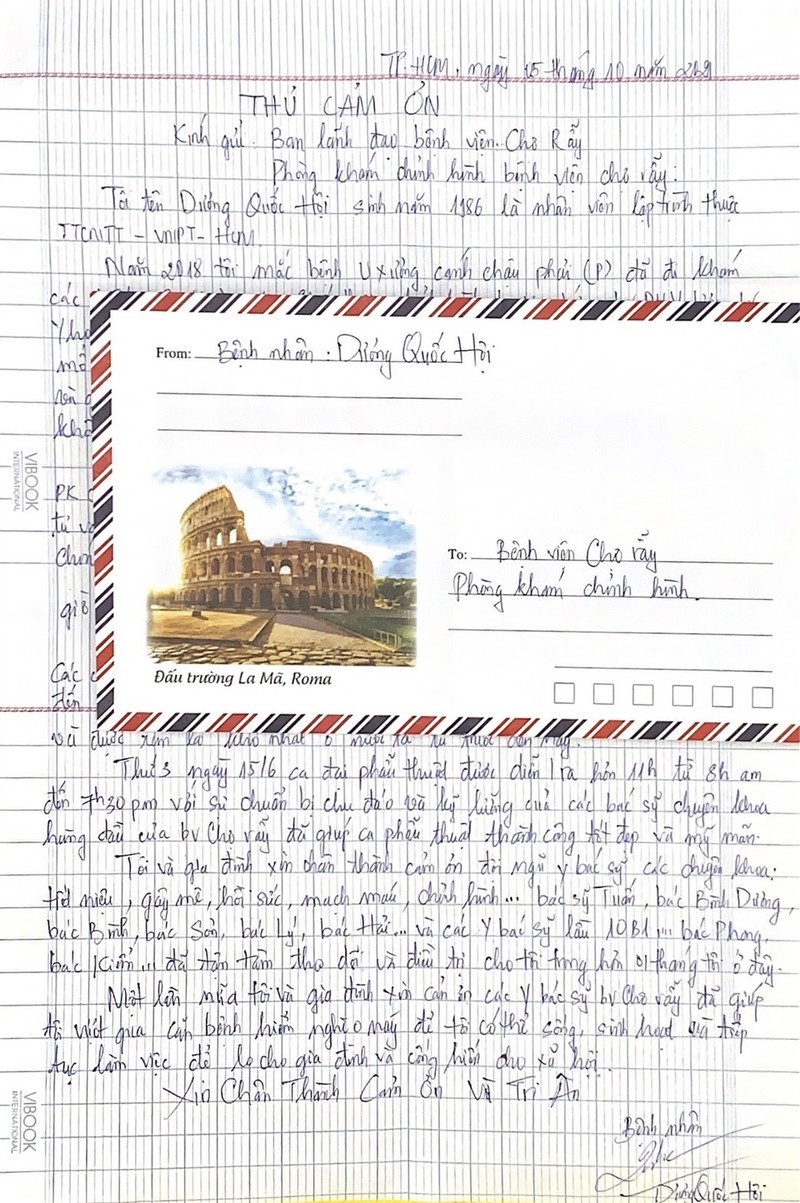 TP.HCM, ngày 15 tháng 10 năm 2021
THƯ CẢM ƠN
Kính gửi: Ban lãnh đạo bệnh viện Chợ Rẫy
Phòng khám chỉnh hình bệnh viện chợ rẫy:
Tôi tên Dương Quốc Hội sinh năm 1986 là nhân viên lập trình thuộc
TTCNTT - VNPT - HCM.
Năm 2018 tôi mắc bệnh U xương cánh chậu phải (P) đã đi khám
các
From: Bệnh nhân: Dương Quốc Hội
khô
VIBOOK
INTERNATIONAL
PK
tư v
To: Bệnh viện Chợ rẫy
Phòng khám chỉnh hình.
giờ
Đấu trường La Mã, Roma
Các
đến
và được xem là khó nhất ở nước ta từ trước đến nay.
Thứ 3 ngày 15/6 ca đại phẫu thuật được diễn ra hơn 11h từ 8h am
đến 7h30 pm với sự chuẩn bị chu đáo và kỹ lưỡng của các bác sỹ chuyên khoa
hàng đầu của bv Chợ rẫy đã giúp ca phẫu thuật thành công tốt đẹp và mỹ mãn.
Tôi và gia đình xin chân thành cảm ơn đội ngũ y bác sỹ, các chuyên khoa:
tiết niệu, gây mê, hồi sức, mạch máu, chỉnh hình... bác sỹ Tuấn, bác Bình Dương,
bác Bính, bác Sơn, bác Lý, bác Hải... và các Y bác sỹ lầu 10B1... bác Phong,
bác Kiên... đã tận tâm theo dõi và điều trị cho tôi trong hơn 01 tháng tôi ở đây.
Một lần nữa tôi và gia đình xin cản ơn các Y bác sỹ bv Chợ rẫy đã giúp
tôi vượt qua căn bệnh hiểm nghèo này để tôi có thể sống, sinh hoạt và tiếp
tục làm việc để lo cho gia đình và cống hiến cho xã hội.
Xin Chân Thành Cảm Ơn Và Tri Ân
VIBOOK
INTERNATIONAL
Bệnh nhân
Dương Quốc Hội